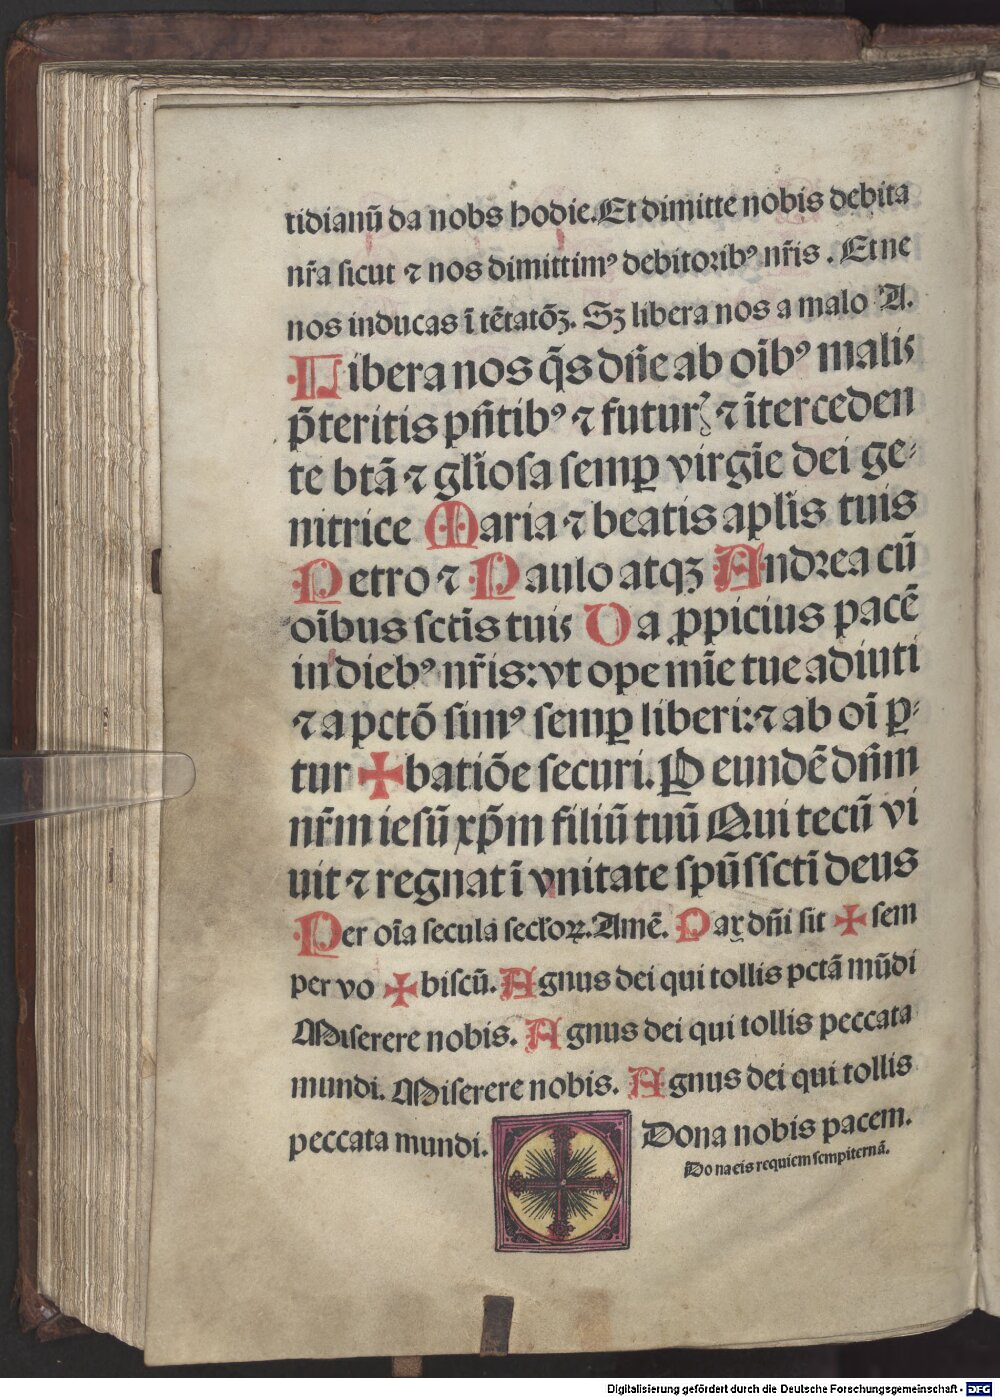 tidianū da nobs hodie. Et dimitte nobis debita
nr̄a sicut ⁊ nos dimittimꝰ debitoribꝰ nr̄is . Et ne
nos inducas ī tētatōꝫ. Sꝫ libera nos a malo A.
Libera nos q̄s dn̄e ab oībꝰ malis
p̄teritis pn̄tibꝰ ⁊ futurꝭ ⁊ īterceden
te btā ⁊ gl̄iosa semꝑ virgīe dei ge⸗
nitrice Maria ⁊ beatis apl̄is tuis
Petro ⁊ Paulo atqꝫ Andrea cū
oībus sctīs tuis Da ꝓpicius pacē
in diebꝰ nr̄is: vt ope mīe tue adiuti
⁊ a pctō simꝰ semꝑ liberi: ⁊ ab oī ꝑ⸗
tur ✠ batiōe securi. P eundē dn̄m
nr̄m iesū xp̄m filiū tuū Qui tecū vi
uit ⁊ regnat ī vnitate spūs sctī deus
Per oīa secula secl̓oꝝ. Amē. Pax dn̄i sit ✠ sem
per vo ✠ biscū. Agnus dei qui tollis pctā mūdi
Miserere nobis. Agnus dei qui tollis peccata
mundi. Miserere nobis. Agnus dei qui tollis
peccata mundi. Dona nobis pacem.
Do na eis requiem sempiternā.
Digitalisierung gefördert durch die Deutsche Forschungsgemeinschaft - DFG